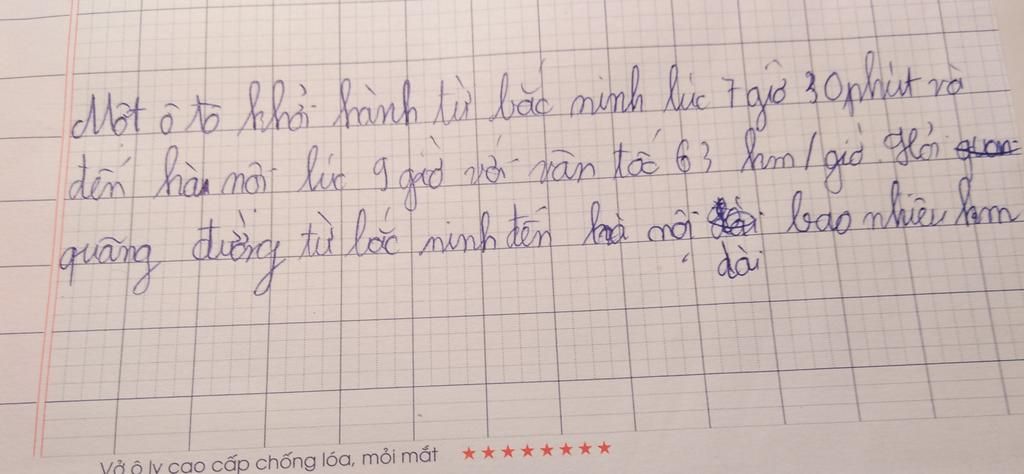 Một ô tô khởi hành từ bắc ninh lúc 7 giờ 30 phút và
đến hà nội lúc 9 giờ với vân tốc 63 km/giờ. Hỏi quan
quãng đường từ bắc ninh đến hà nội bao nhiêu km
dài
Vở ô ly cao cấp chống lóa, mỏi mắt ★★★★★★★★